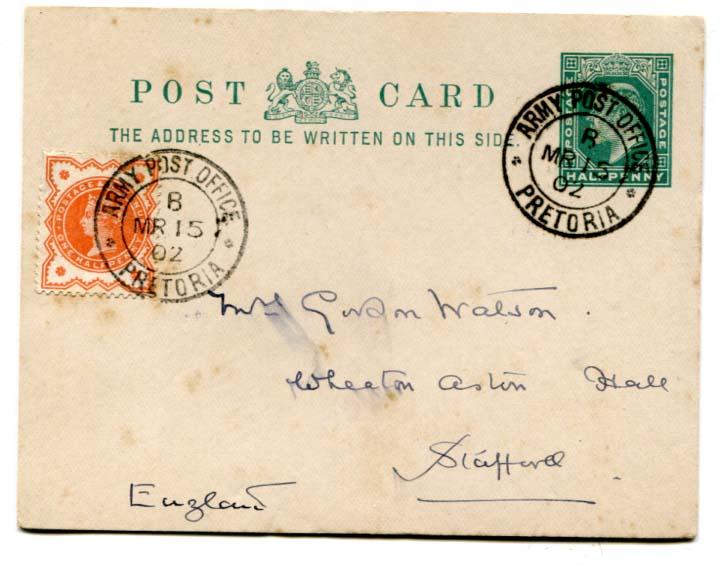 POST CARD
THE ADDRESS TO BE WRITTEN ON THIS SIDE.
POSTAGE POSTAGE
HALFPENNY
ARMY POST OFFICE
B
MR 15
02
PRETORIA
POSTAGE
ONE HALFPENNY
ARMY POST OFFICE
B
MR 15
02
PRETORIA
Gordon Watson.
Wheaton Aston Hall
Stafford
England